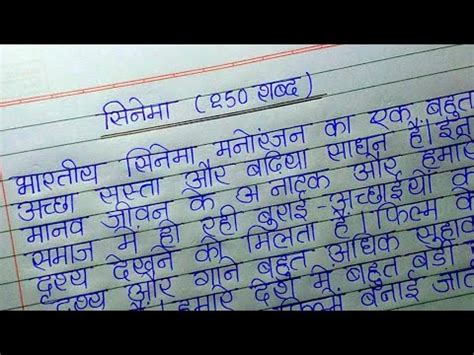 सिनेमा (250 शब्द)
भारतीय सिनेमा मनोरंजन का एक बहुत
अच्छा सस्ता और बढिया साधन है। इन
मानव जीवन के अ नाटक और हमारे
समाज में हो रही बुराई-अच्छाईयों क
दृश्य देखने को मिलता है। फिल्म के
दृश्य और गाने बहुत अधिक सुहाव
हमारे देश में बहुत बड़ी
फिल्में बनाई जात